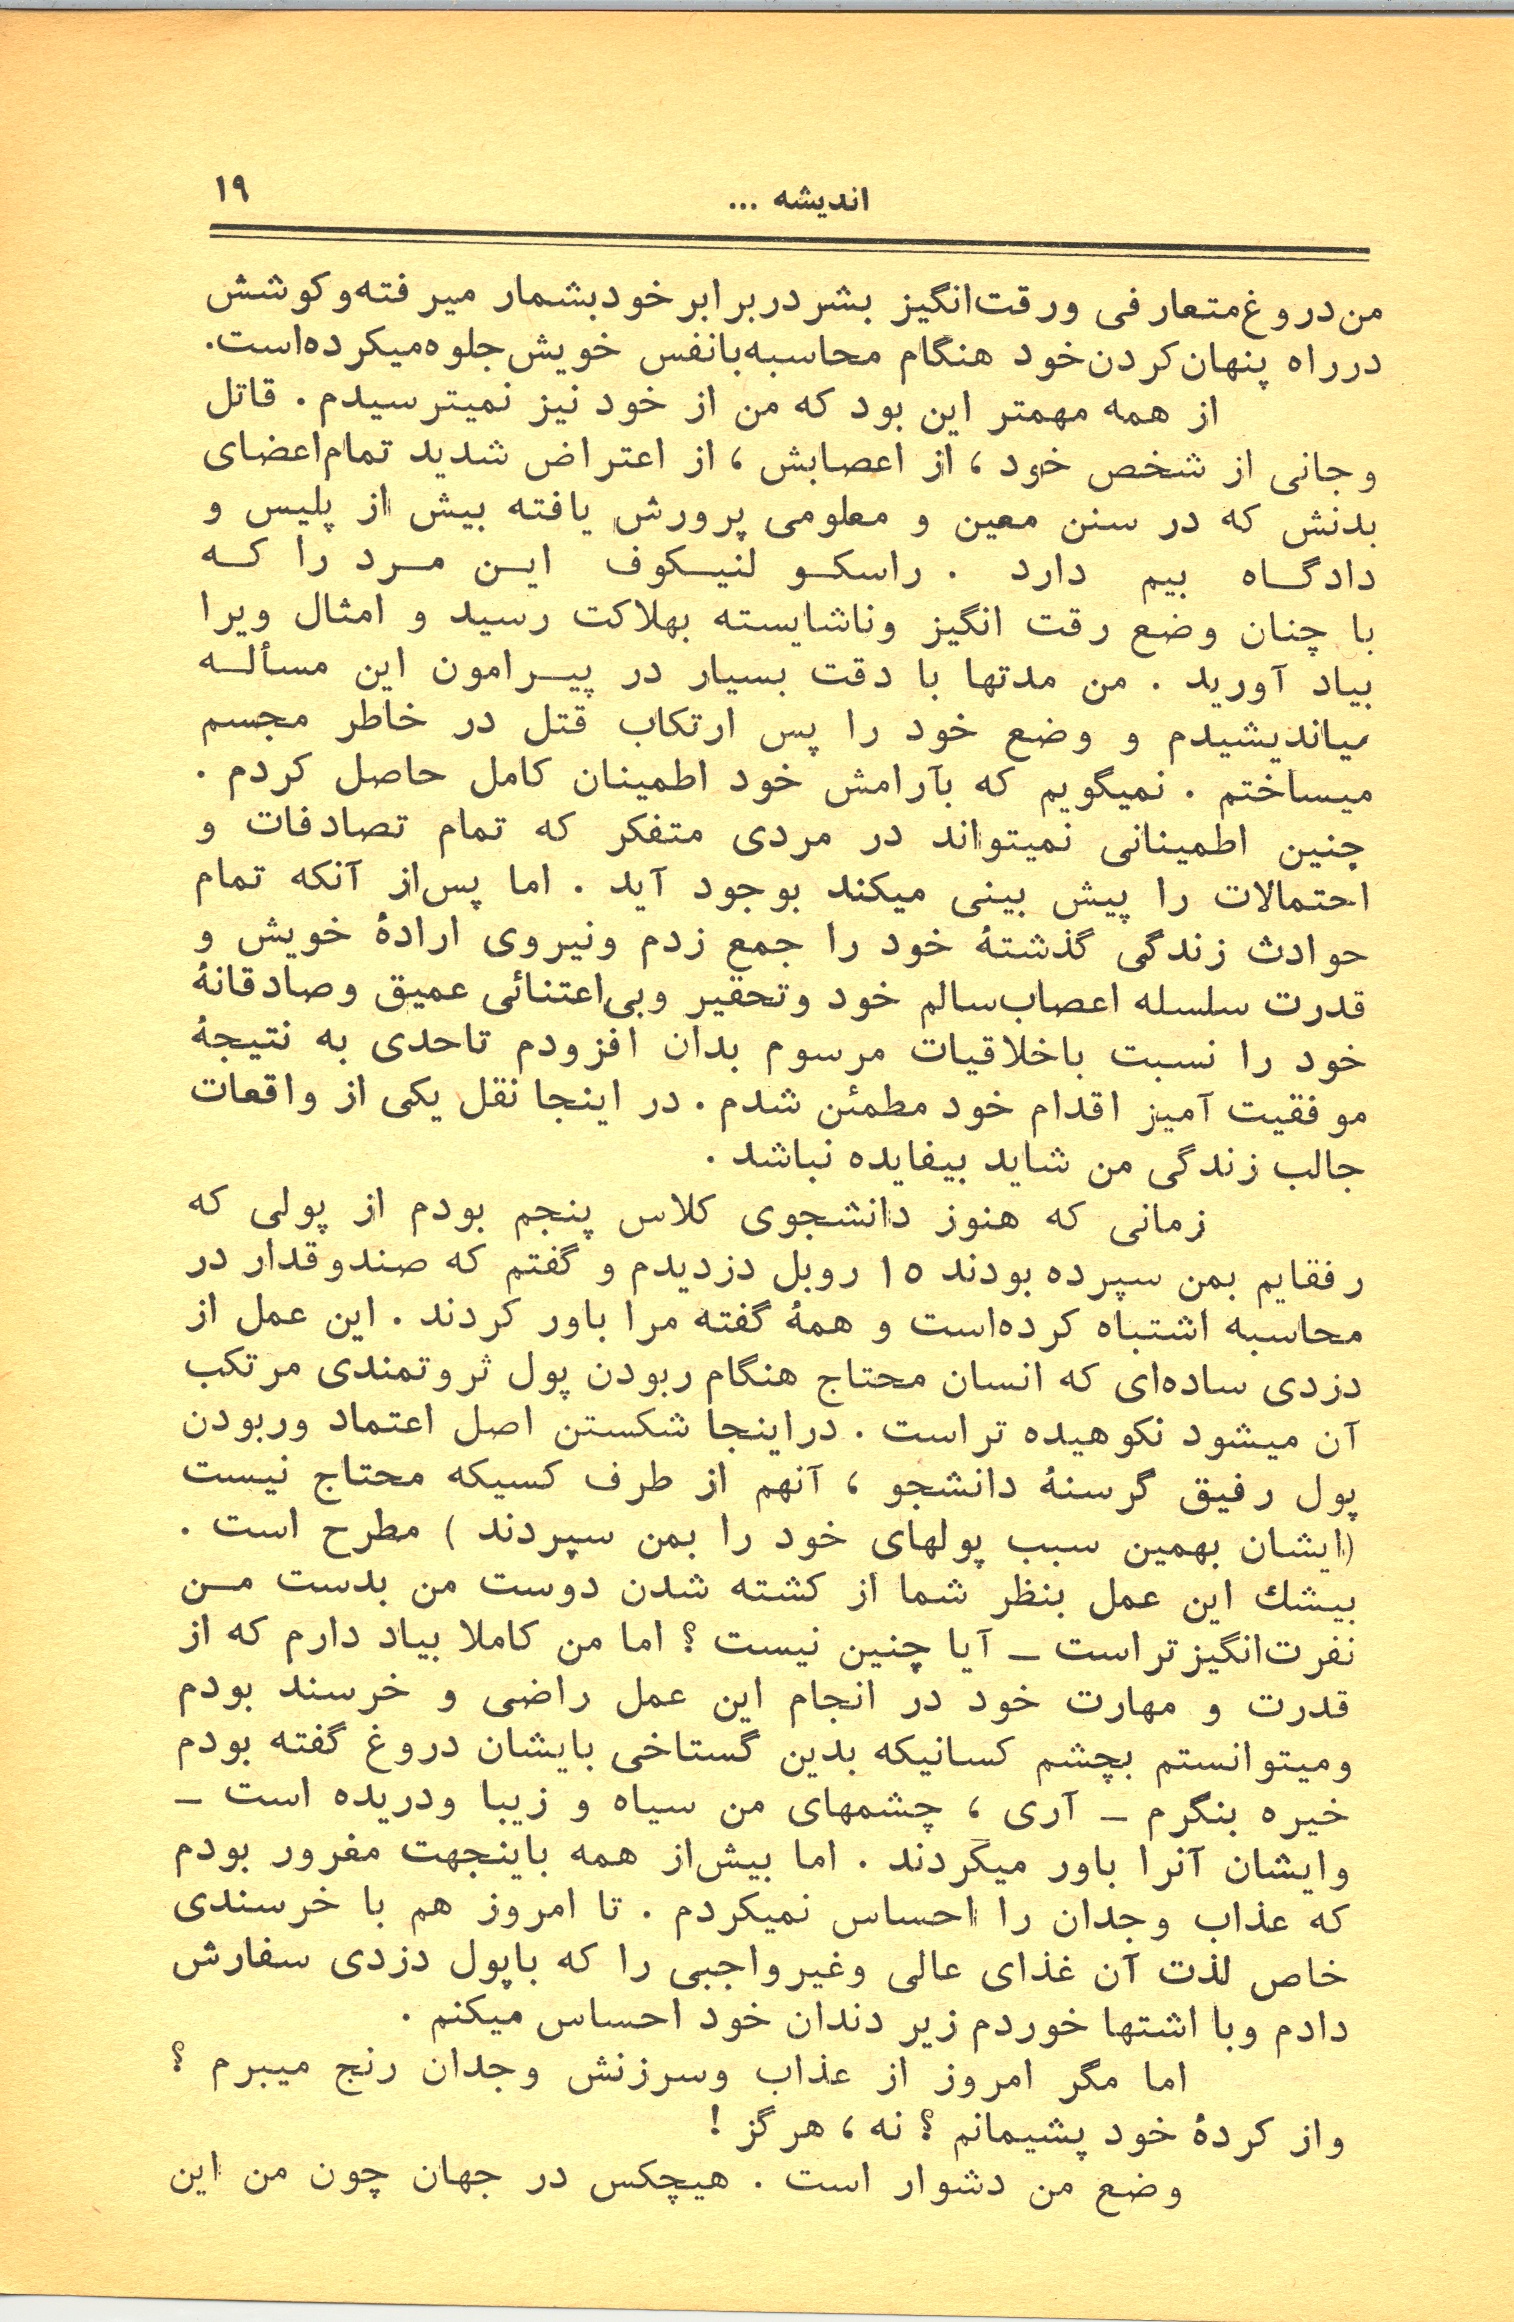 اندیشه ...
۱۹
من دروغ متعارفی ورقت‌انگیز بشر در برابر خود بشمار میرفته و کوشش
در راه پنهان کردن خود هنگام محاسبه با نفس خویش جلوه میکرده‌است.
از همه مهمتر این بود که من از خود نیز نمیترسیدم . قاتل
وجانی از شخص خود ، از اعصابش ، از اعتراض شدید تمام اعضای
بدنش که در سنن معین و معلومی پرورش یافته بیش از پلیس و
دادگاه بیم دارد . راسکو لنیکوف این مرد را که
با چنان وضع رقت انگیز وناشایسته بهلاکت رسید و امثال ویرا
بیاد آورید . من مدتها با دقت بسیار در پیرامون این مسأله
میاندیشیدم و وضع خود را پس ارتکاب قتل در خاطر مجسم
میساختم . نمیگویم که بآرامش خود اطمینان کامل حاصل کردم .
چنین اطمینانی نمیتواند در مردی متفکر که تمام تصادفات و
احتمالات را پیش بینی میکند بوجود آید . اما پس‌از آنکه تمام
حوادث زندگی گذشتهٔ خود را جمع زدم ونیروی ارادهٔ خویش و
قدرت سلسله اعصاب‌سالم خود وتحقیر وبی‌اعتنائی عمیق وصادقانهٔ
خود را نسبت باخلاقیات مرسوم بدان افزودم تاحدی به نتیجهٔ
موفقیت آمیز اقدام خود مطمئن شدم . در اینجا نقل یکی از واقعات
جالب زندگی من شاید بیفایده نباشد .
زمانی که هنوز دانشجوی کلاس پنجم بودم از پولی که
رفقایم بمن سپرده بودند ۱۵ روبل دزدیدم و گفتم که صندوقدار در
محاسبه اشتباه کرده‌است و همهٔ گفته مرا باور کردند . این عمل از
دزدی ساده‌ای که انسان محتاج هنگام ربودن پول ثروتمندی مرتکب
آن میشود نکوهیده تراست . دراینجا شکستن اصل اعتماد وربودن
پول رفیق گرسنهٔ دانشجو ، آنهم از طرف کسیکه محتاج نیست
(ایشان بهمین سبب پولهای خود را بمن سپردند ) مطرح است .
بیشك این عمل بنظر شما از کشته شدن دوست من بدست من
نفرت‌انگیزتراست ـ آیا چنین نیست ؟ اما من کاملا بیاد دارم که از
قدرت و مهارت خود در انجام این عمل راضی و خرسند بودم
ومیتوانستم بچشم کسانیکه بدین گستاخی بایشان دروغ گفته بودم
خیره بنگرم ـ آری ، چشمهای من سیاه و زیبا ودریده است ـ
وایشان آنرا باور میگردند . اما بیش‌از همه باینجهت مغرور بودم
که عذاب وجدان را احساس نمیکردم . تا امروز هم با خرسندی
خاص لذت آن غذای عالی وغیرواجبی را که باپول دزدی سفارش
دادم وبا اشتها خوردم زیر دندان خود احساس میکنم .
اما مگر امروز از عذاب وسرزنش وجدان رنج میبرم ؟
واز کردهٔ خود پشیمانم ؟ نه ، هرگز !
وضع من دشوار است . هیچکس در جهان چون من این